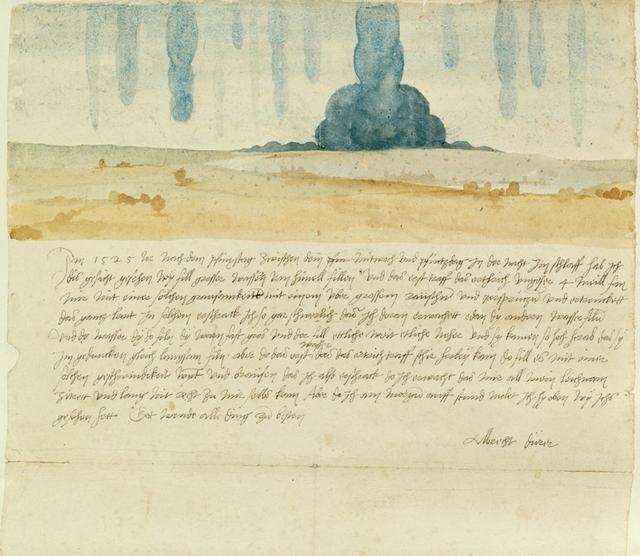 Im 1525 Jor nach dem pfinxstag zwischen dem Mitwoch und pfintzdag in der nacht im schlaff hab ich
dis gesicht gesehen wy fill grosser wassern vom himell fillen Und das erst traff das erthrich ungefer 4 meill fan
mir mit einer solchen grausamkeitt mit einem uber grossem raüschn und zersprützen und ertrenckett
das gantz lant In solchem erschrack ich so gar schwerlich das ich doran erwachett edan dy andern wasser filn
Und dy wasser dy do filn dy warn fast gros und der fill ettliche weit etliche neher und sy kamen so hoch herab das sy
im gedancken gleich langsam filn aber do das erst wasser das das ertrich traff schir herbey kam do fill es mit einer
solchen geschwindikeit wynt und braüsen das ich also erschrack do ich erwacht das mir all mein leichnam
zitrett und lang nit recht zu mir selbs kam Aber do ich am morgn auff stund molet ich hy oben wy ichs
gesehen hett Got wende alle ding zu besten
Albrecht dürer